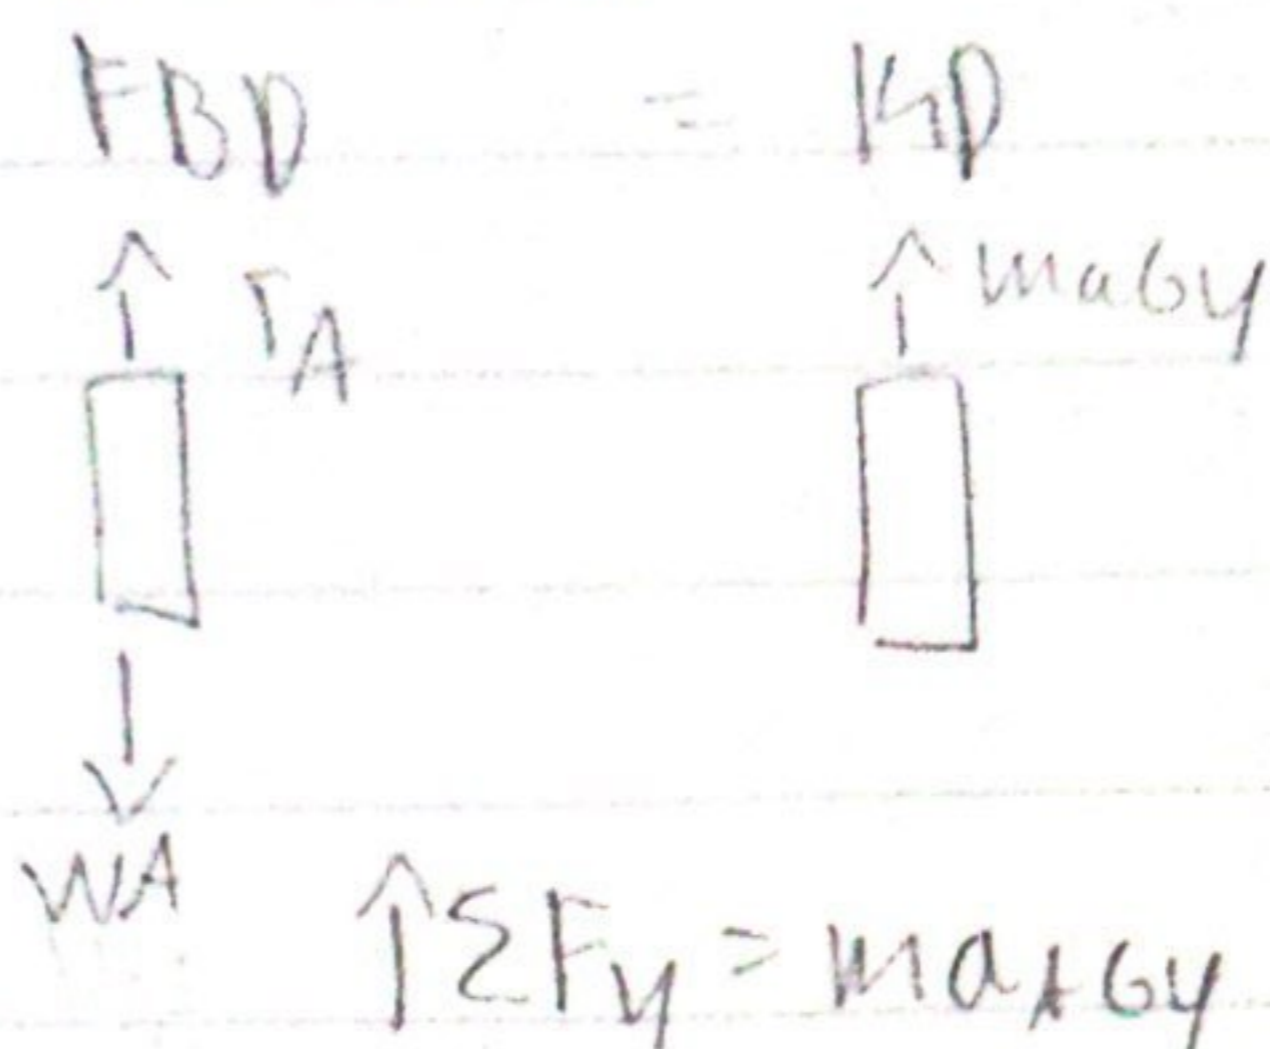 FBD = KD
TA maGy
WA
↑ΣFy = maAGy